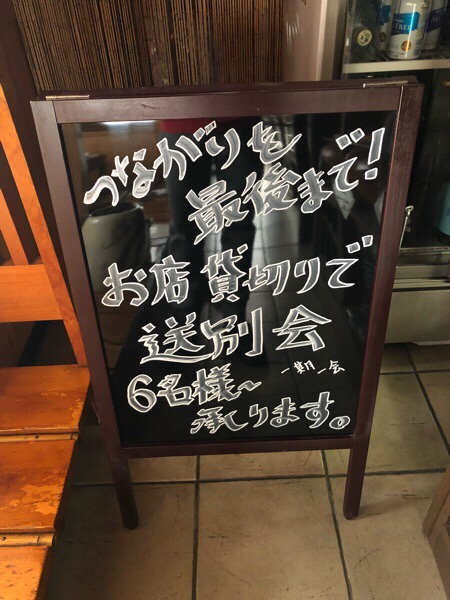 つながりを
最後まで!
お店貸切りで
送別会
一期一会
6名様~
承ります。